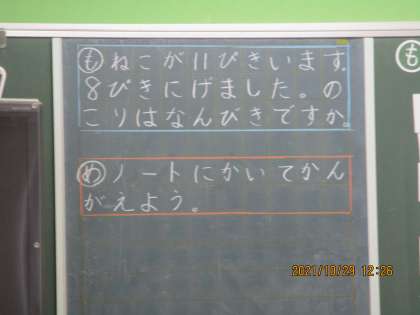 も ねこが11ぴきいます。
8ぴきにげました。の
こりはなんびきですか。
め ノートにかいてかん
がえよう。
も
2021/10/29 12:26